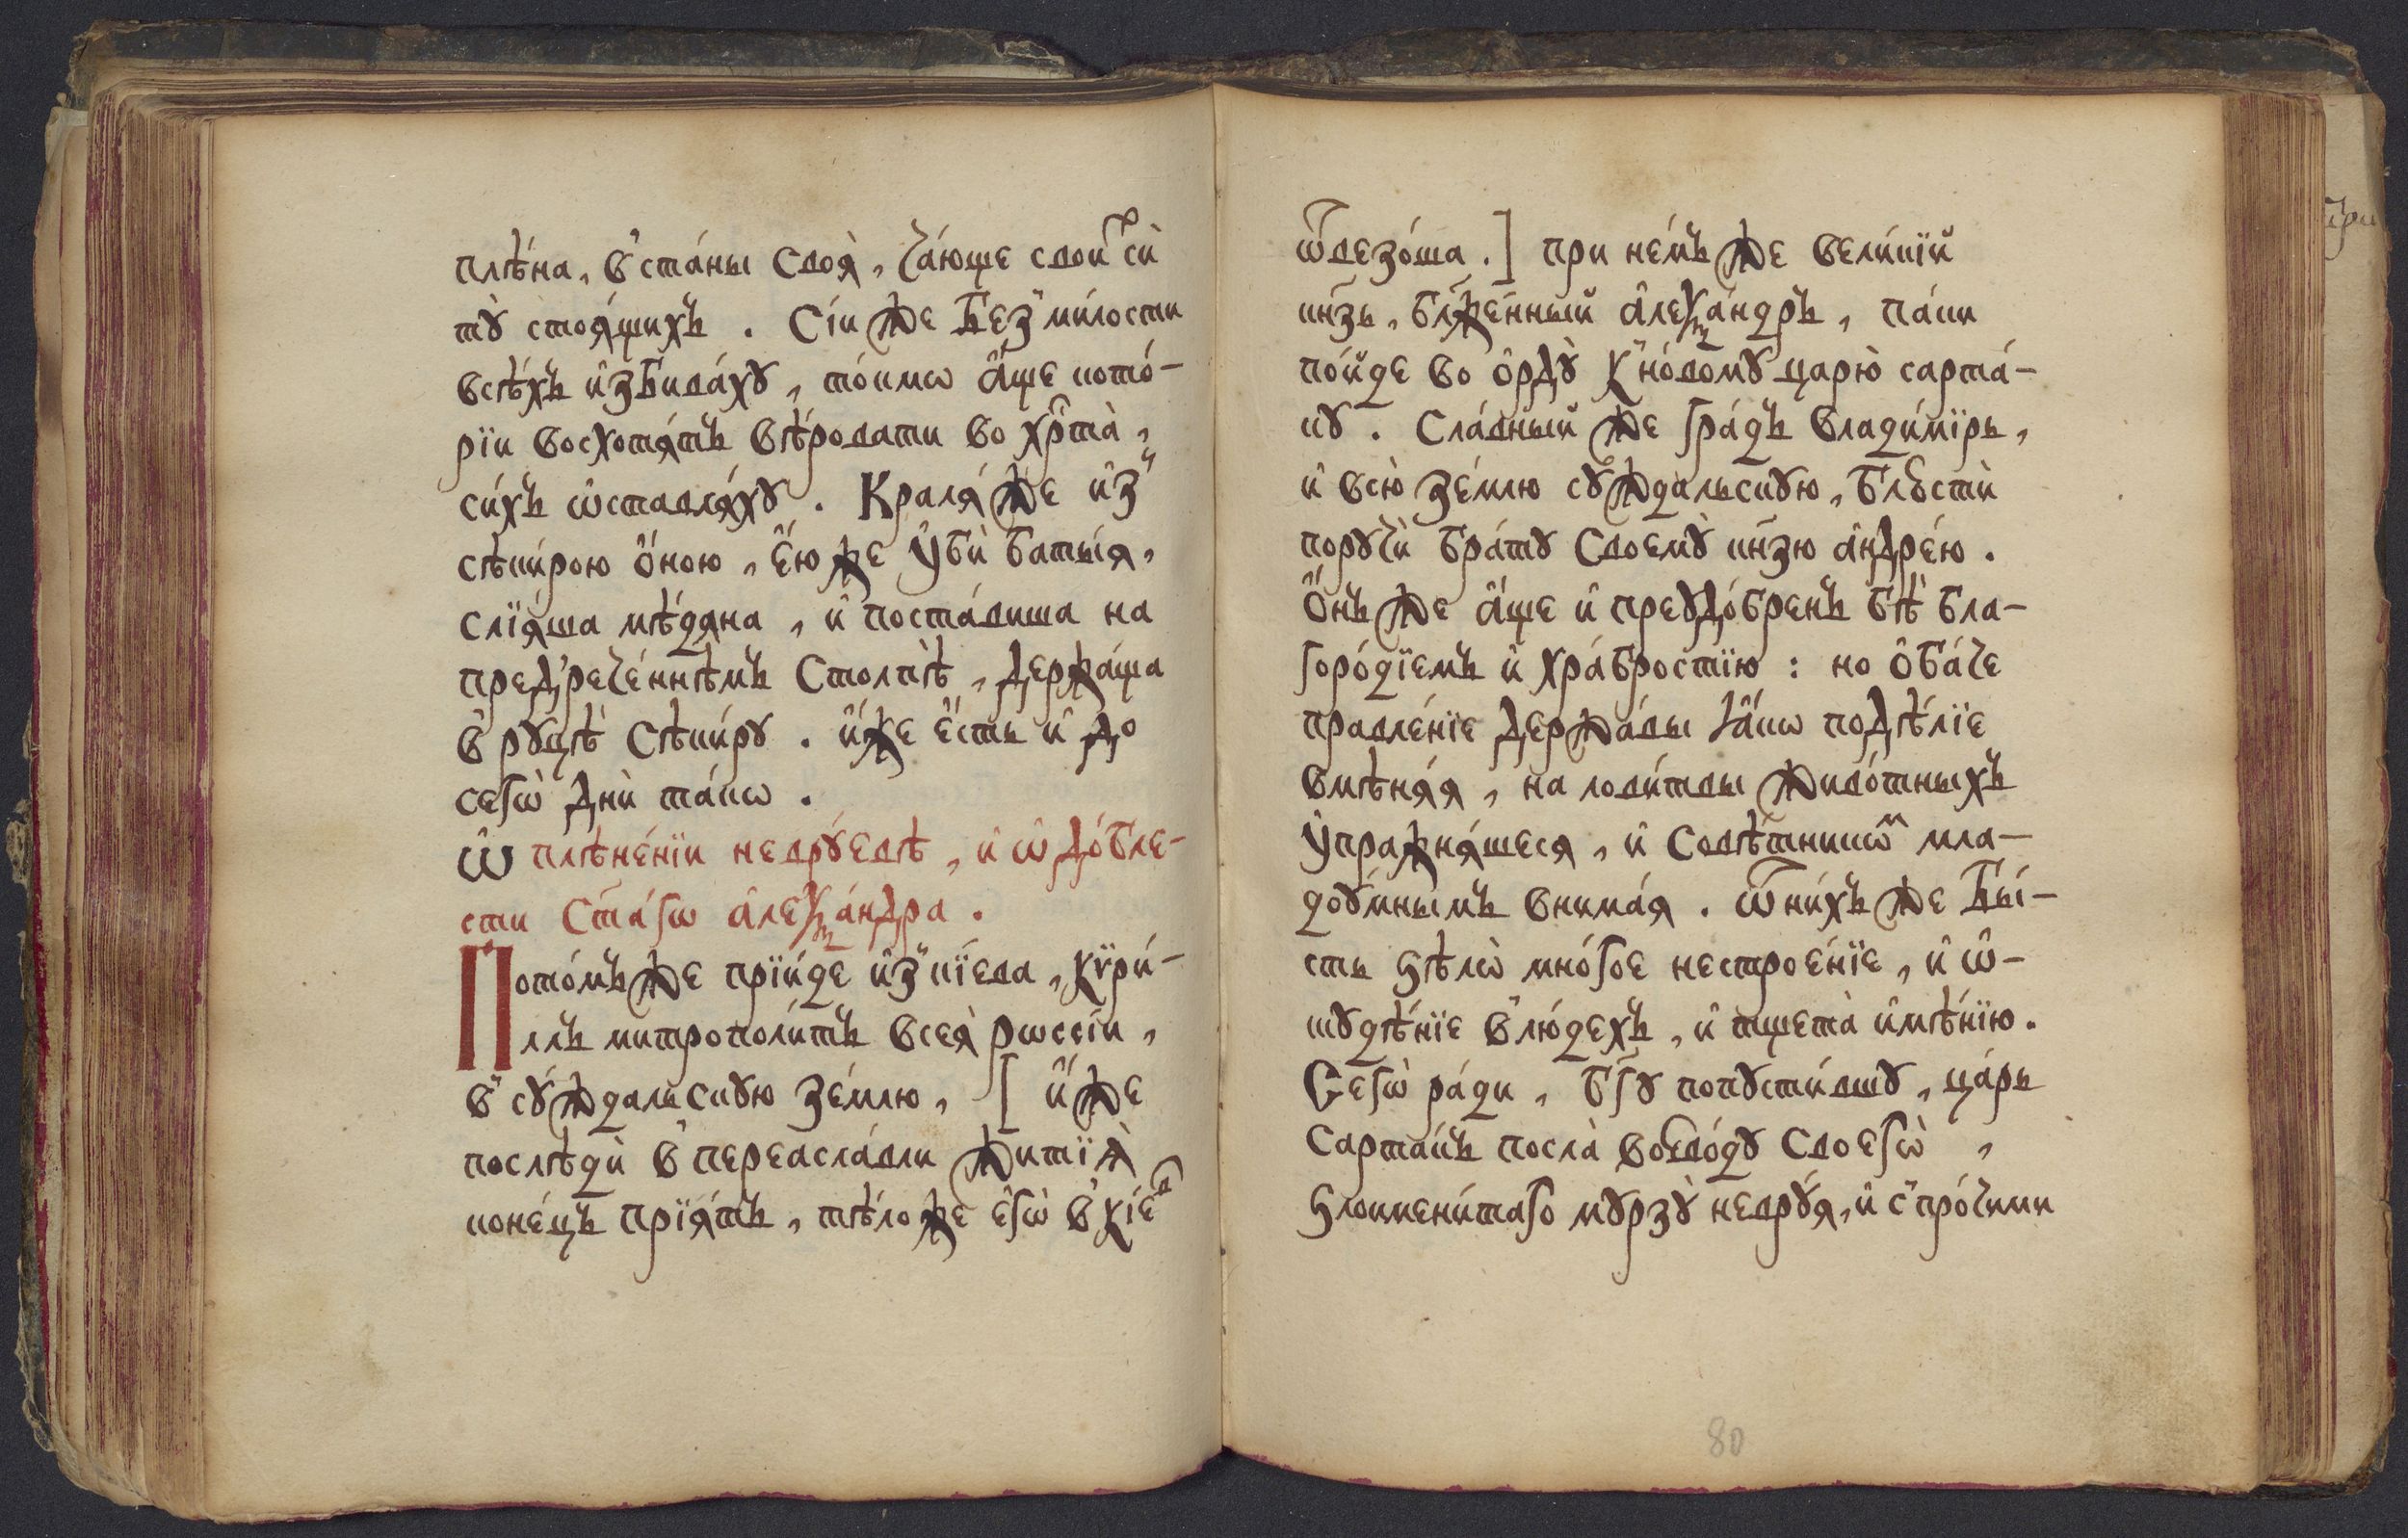 плѣ́на, в̾ста́ны своѧ̀, ча́юще свои̑ си̑
тꙋ̀ стоѧ́щихъ. Сі́и же без̾ми́лости
всѣ́хъ и҆збива́хꙋ, то́кмѡ а҆́ще кото́-
рїи восхотѧ́тъ вѣ́ровати во хрⷭ҇та̀,
си́хъ ѡ҆ставлѧ́хꙋ. Кралѧ́ же и҆з̾
сѣки́рою ѻ҆́ною, є҆́юже ᲂу҆бѝ баты́ѧ,
слїѧ́ша мѣ́дѧна, и҆ поста́виша на
пред̾рече́ннѣмъ столпѣ̀, держа́ща
в̾ рꙋцѣ̀ сѣки́рꙋ. и҆́же є҆́сть и҆ до
сегѡ̀ днѝ та́кѡ.
Ѡ҆ плѣне́нїи неврꙋ́евѣ, и҆ ѡ҆ до́бле-
сти ст҃а́гѡ а҆леѯа́ндра.
Пото́мъ же прїи́де и҆з̾ кі́ева, кѷри́-
ллъ митрополи́тъ всеѧ̀ рѡссі́и,
в̾ сꙋ́ждальскꙋю зе́млю, [ и҆́же
послѣдѝ в̾ переасла́вли житїѧ̀
коне́цъ прїѧ́тъ, тѣ́ло же є҆гѡ̀ в̾ кі́еⷡ҇
ѿвезо́ша. ] при не́мъ же вели́кїй
кн҃зь, бл҃же́нный а҆леѯа́ндръ, па́ки
по́йде во ѻ҆рдꙋ̀ к̾ но́вомꙋ царю̀ сарта́-
кꙋ. Сла́вный же гра́дъ влади́мїрь,
и҆ всю̀ зе́млю сꙋ́ждальскꙋю, блюстѝ
порꙋчѝ бра́тꙋ своемꙋ̀ кн҃зю а҆ндре́ю.
Ѻ҆́нъ же а҆́ще и҆ преꙋдо́бренъ бѣ̀ бла-
горо́дїемъ и҆ хра́бростїю: но ѻ҆ба́че
правле́нїе держа́вы ꙗ҆́кѡ подѣ́лїе
вмѣнѧ́ѧ, на лови́твы живо́тныхъ
ᲂу҆пражнѧ́шесѧ, и҆ совѣ́тникѡⷨ мла-
доꙋ́мнымъ внима́ѧ. Ѿ ни́хъ же бы́-
сть ѕѣлѡ̀ мно́гое нестрое́нїе, и҆ ѡ҆-
скꙋдѣ́нїе в̾ лю́дехъ, и҆ тщета̀ и҆мѣ́нїю.
Сегѡ̀ ра́ди, бг҃ꙋ попꙋсти́вшꙋ, ца́рь
сарта́къ посла̀ воево́дꙋ своегѡ̀,
ѕлоимени́таго мꙋрзꙋ̀ неврꙋ́ѧ, и҆ с̾ про́чими
80